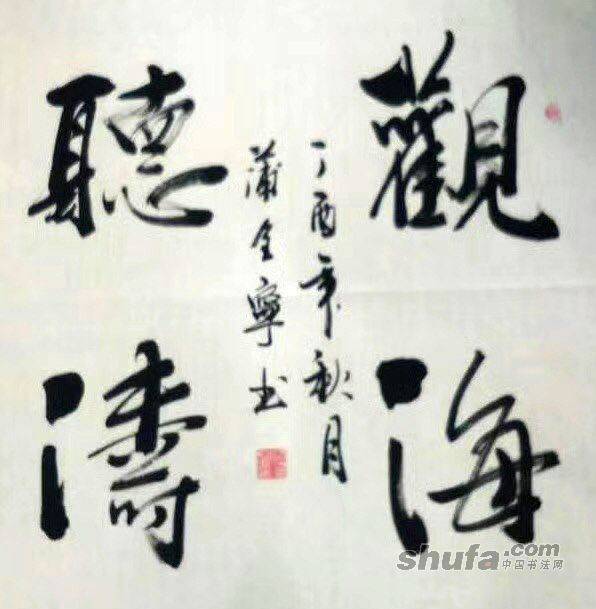 觀海
聽濤
丁酉年秋月
蒲全寧书
shufa.com
中国书法网